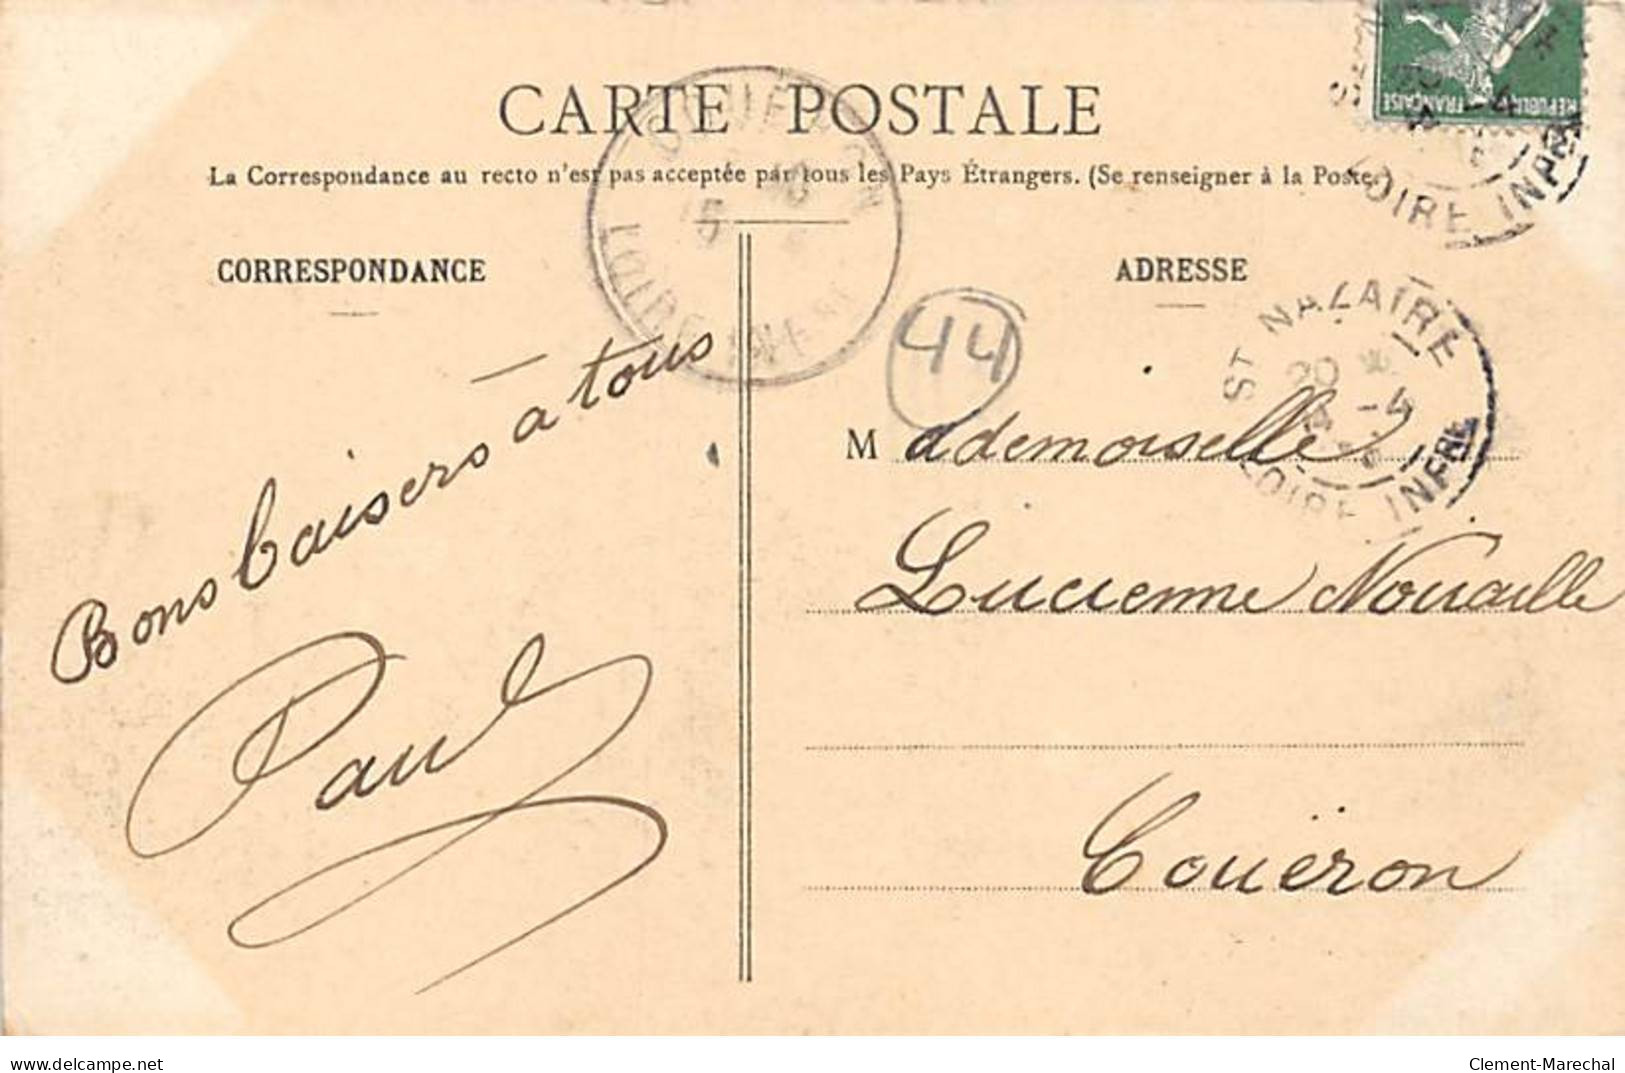 CARTE POSTALE
La Correspondance au recto n'est pas acceptée par tous les Pays Étrangers. (Se renseigner à la Poste.)
RÉPUBLIQUE FRANÇAISE
LOIRE INFRE
LOIRE INFRE
CORRESPONDANCE
ADRESSE
44
ST NAZAIRE
20
-4
LOIRE INFRE
Bons baisers à tous
Paul
Mademoiselle
Lucienne Nouaille
Couëron
delcampe.net
Clement-Marechal